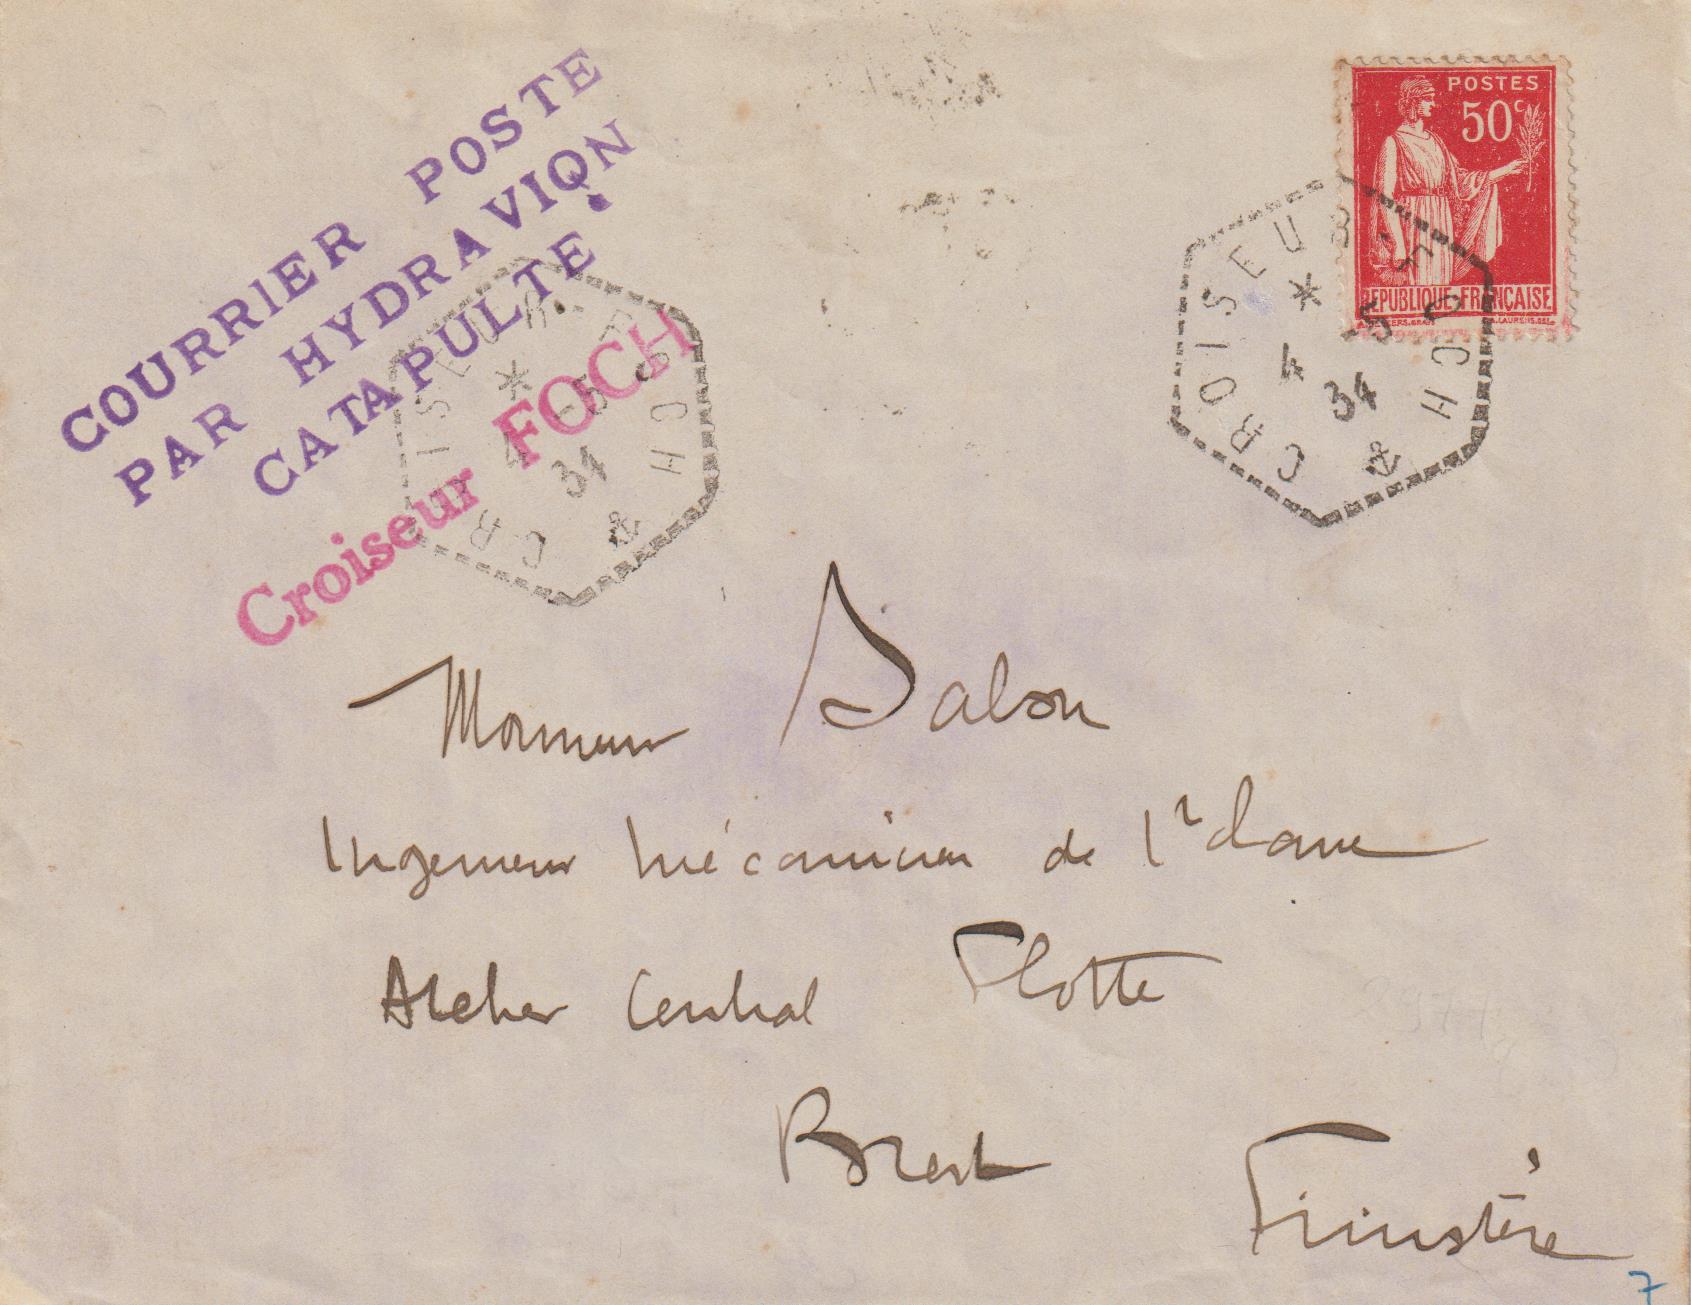 COURRIER POSTE
PAR HYDRAVION
CATAPULTE
Croiseur FOCH
CROISEUR-FOCH
* 4 -5 34
POSTES
50c
RÉPUBLIQUE-FRANÇAISE
CROISEUR-FOCH
* 4 -5 34
Monsieur Salou
Ingenieur Mécanicien de 1r classe
Atelier Central Flotte
Brest
Finistère
7